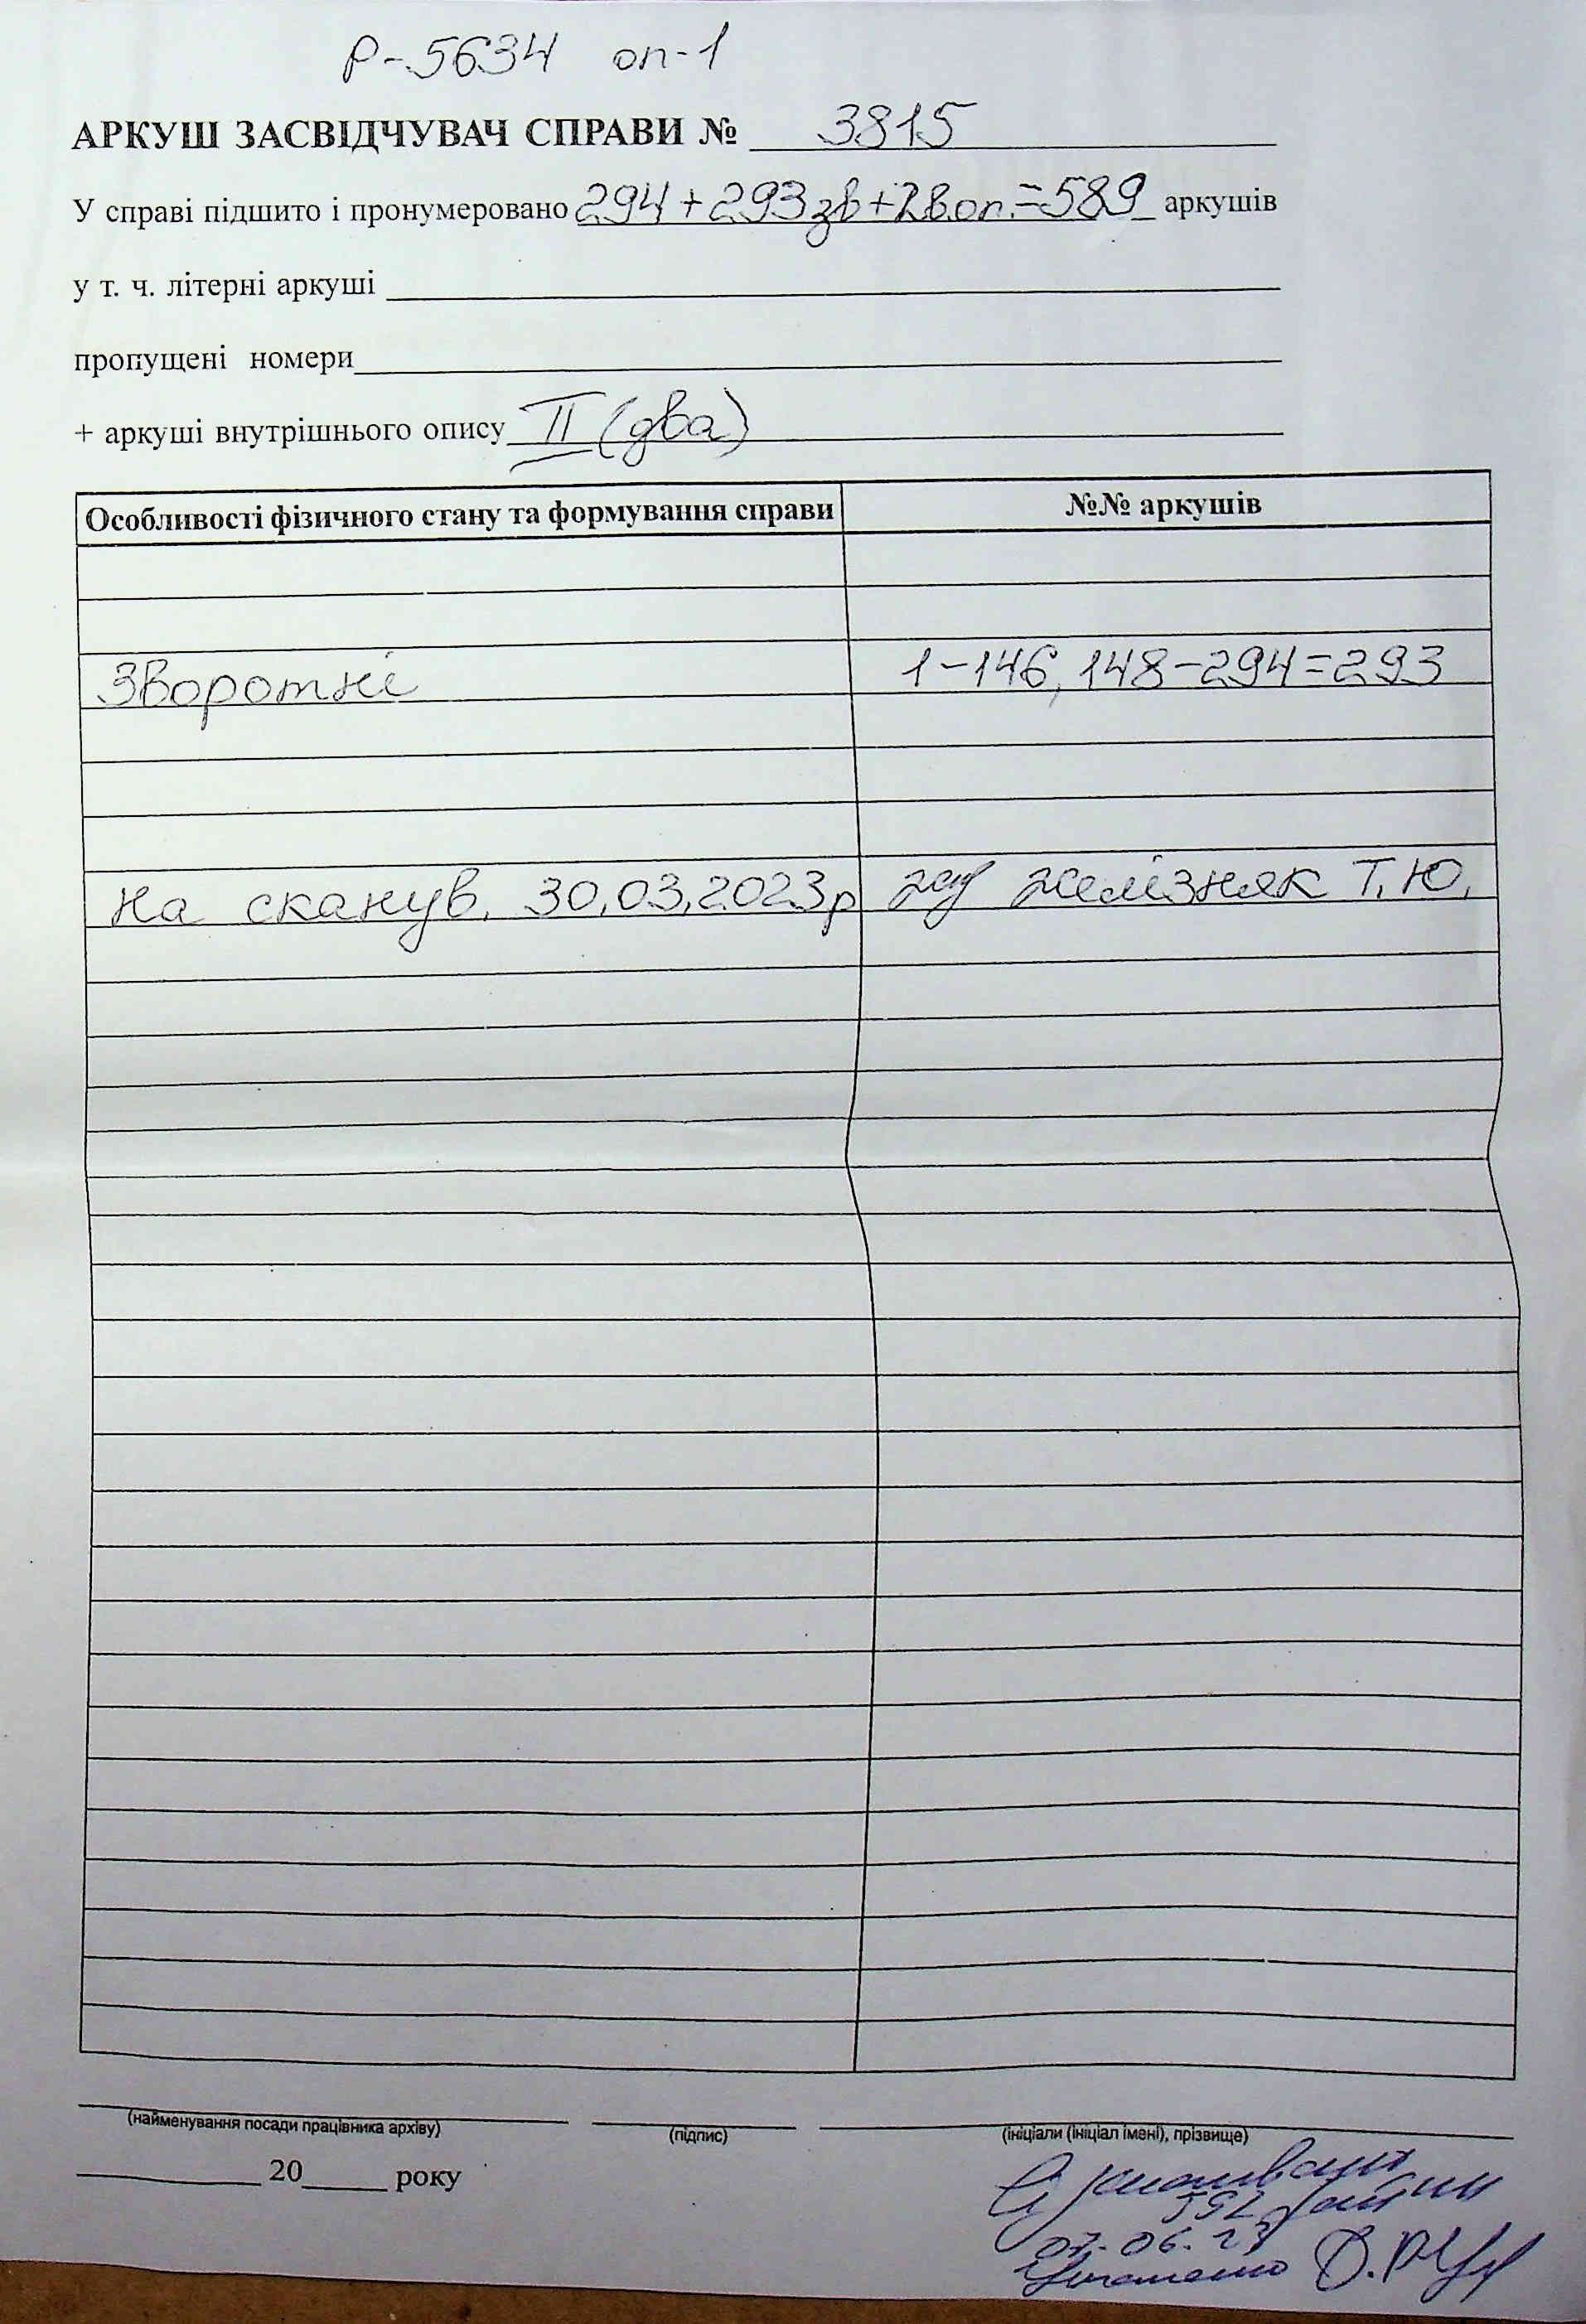 Р-5634 оп-1
АРКУШ ЗАСВІДЧУВАЧ СПРАВИ № 3815
У справі підшито і пронумеровано 294+293зв+2в.оп.=589 аркушів
у т. ч. літерні аркуші
пропущені номери
+ аркуші внутрішнього опису II (два)
Особливості фізичного стану та формування справи №№ аркушів
Зворотні 1-146, 148-294=293
На сканув. 30.03.2023р Желізняк Т.Ю.
(найменування посади працівника архіву) (підпис) (ініціали (ініціал імені), прізвище)
20 року
файли
07.06.23